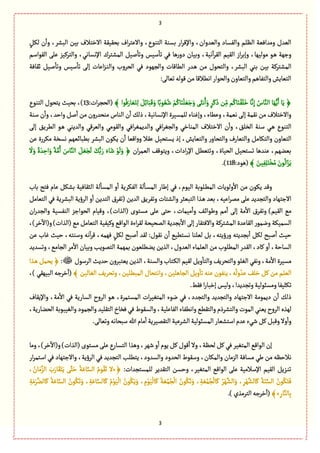 3
العدل ومدافعة الظلم والفساد والعدوان، والإقرار بسنة التنوع، والاعتراف بحقيقة الاختلاف بين البشر، وأن لكلٍ
وجهة هو موليها، وإبراز القيم القرآنية، وبيان دورها في تأسيس وتأصيل المشترك الإنساني، والتركيز على القواسم
المشتركة بين بني البشر، والتحول من هدر الطاقات والجهود في الحروب والنزاعات إلى تأسيس وتأصيل ثقافة
التعايش والتفاهم والتعاون والحوار انطلاقا من قوله تعالى:
﴿ يَا أَيُّهَا النَّاسُ إِنَّا خَلَقْنَاكُم مِّن ذَكَرٍ وَأُنثَى وَجَعَلْنَاكُمْ شُعُوبًا وَقَبَائِلَ لِتَعَارَفُوا ﴾ (الحجرات:13)، بحيث يتحول التنوع
والاختلاف من نقمة إلى نعمة، وعطاء، وإغناء للمسيرة الإنسانية، ذلك أن الناس منحدرون من أصل واحد، وأن سنة
التنوع هي سنة الخلق، وأن الاختلاف المناخي والجغرافي والديمغرافي والقومي والعرقي والديني هو الطريق إلى
التعاون والتكامل والتعارف والتحاور والتعايش، إذ يستحيل عقلا وواقعا أن يكون البشر بطبائعهم نسخة مكررة عن
بعضهم، عندها تستحيل الحياة، وتتعطل الإرادات، ويتوقف العمران ﴿ وَلَوْ شَاءَ رَبُّكَ لَجَعَلَ النَّاسَ أُمَّةً وَاحِدَةً وَلَا
يَزَالُونَ مُخْتَلِفِينَ ﴾ (هود:118).
وقد يكون من الأولويات المطلوبة اليوم، في إطار المسألة الفكرية أو المسألة الثقافية بشكل عام فتح باب
الاجتهاد والتجديد على مصراعيه، بعد هذا التبعثر والشتات وتفريق الدين (تفرق التدين أو الرؤية البشرية في التعامل
مع القيم) وتفرق الأمة إلى أمم وطوائف وأميبيات، حتى على مستوى (الذات)، وقيام الحواجز النفسية والجدران
السميكة وضمور القاعدة المشتركة والافتقار إلى الأبجدية الصحيحة لقراءة الواقع وكيفية التعامل مع (الذات) و(الآخر)،
حيث أصبح لكلٍ أبجديته ورؤيته، بل لعلنا نستطيع أن نقول: لقد أصبح لكلٍ فهمه، قرآنه وسنته، حيث غاب عن
الساحة، أو كاد، القدر المطلوب من العلماء العدول، الذين يضطلعون بمهمة التصويب وبيان الأمر الجامع، وتسديد
مسيرة الأمة، ونفي الغلو والتحريف والتأويل لقيم الكتاب والسنة، الذين يعتبرون حديث الرسول ﷺ: ﴿ يحمل هذا
العلم من كل خلف عدوله، ينفون عنه تأويل الجاهلين، وانتحال المبطلين، وتحريف الغالين ﴾ (أخرجه البيهقي)،
تكليفا ومسئولية وتجديدا، وليس إخبارا فقط.
ذلك أن ديمومة الاجتهاد والتجديد والتجدد، في ضوء المتغيرات المستمرة، هو الروح السارية في الأمة، والإيقاف
لهذه الروح يعني الموت والتشرذم والتقطع وانطفاء الفاعلية، والسقوط في فخاخ التقليد والجمود والغيبوبة الحضارية،
وأولا وقبل كل شيء عدم استشعار المسئولية الشرعية التقصيرية أمام الله سبحانه وتعالى.
إن الواقع المتغير في كل لحظة، ولا أقول كل يوم أو شهر، وهذا التسارع على مستوى (الذات) و(الآخر)، وما
نلاحظه من طي مسافة الزمان والمكان، وسقوط الحدود والسدود، يتطلب التجديد في الرؤية، والاجتهاد في استمرار
تنزيل القيم الإسلامية على الواقع المتغير، وحسن التقدير للمستجدات: ﴿ لَا تَقُومُ السَّاعَةُ حَتَّى يَتَقَارَبَ الزَّمَانُ،
فَتَكُونُ السَّنَةُ كَالشَّهْرِ، وَالشَّهْرُ كَالْجُمُعَةِ، وَتَكُونُ الْجُمُعَةُ كَالْيَوْمِ، وَيَكُونُ الْيَوْمُ كَالسَّاعَةِ، وَتَكُونُ السَّاعَةُ كَالضَّرَمَةِ
بِالنَّارِ ﴾ (أخرجه الترمذي).
3